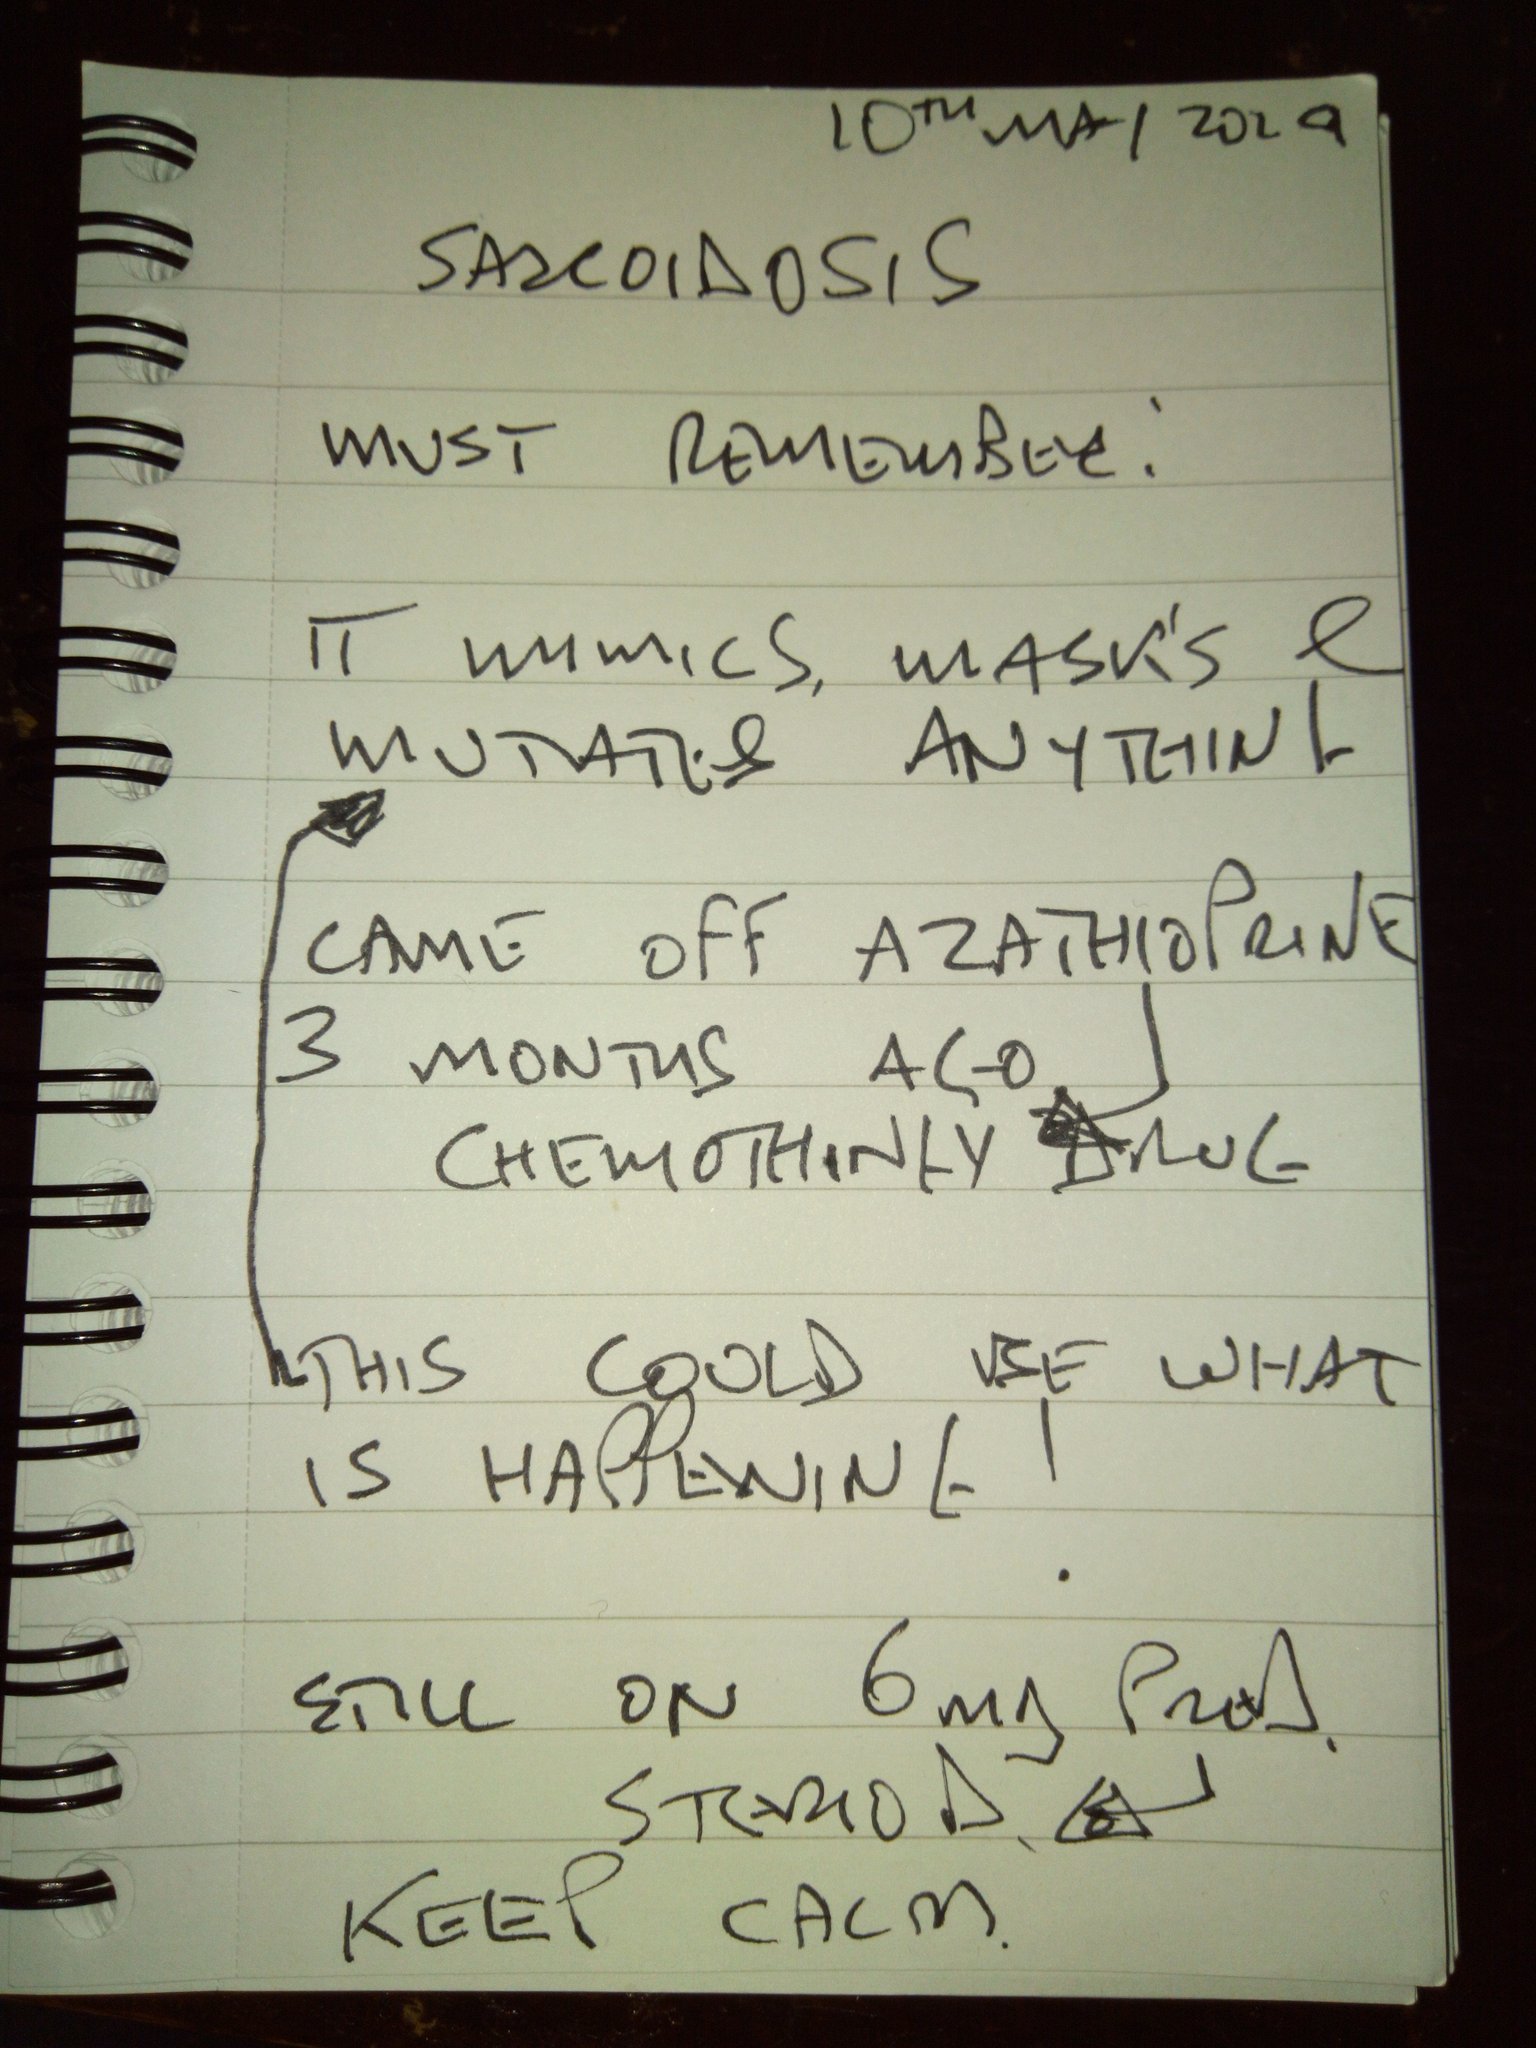 10TH MAY 2029
SARCOIDOSIS
MUST REMEMBER:
IT MIMICS, MASK'S &
MUTATES ANYTHING
CAME OFF AZATHIOPRINE
3 MONTHS AGO.
CHEMOTHINGY DRUG
THIS COULD BE WHAT
IS HAPPENING!
STILL ON 6mg PRED.
STEROID.
KEEP CALM.